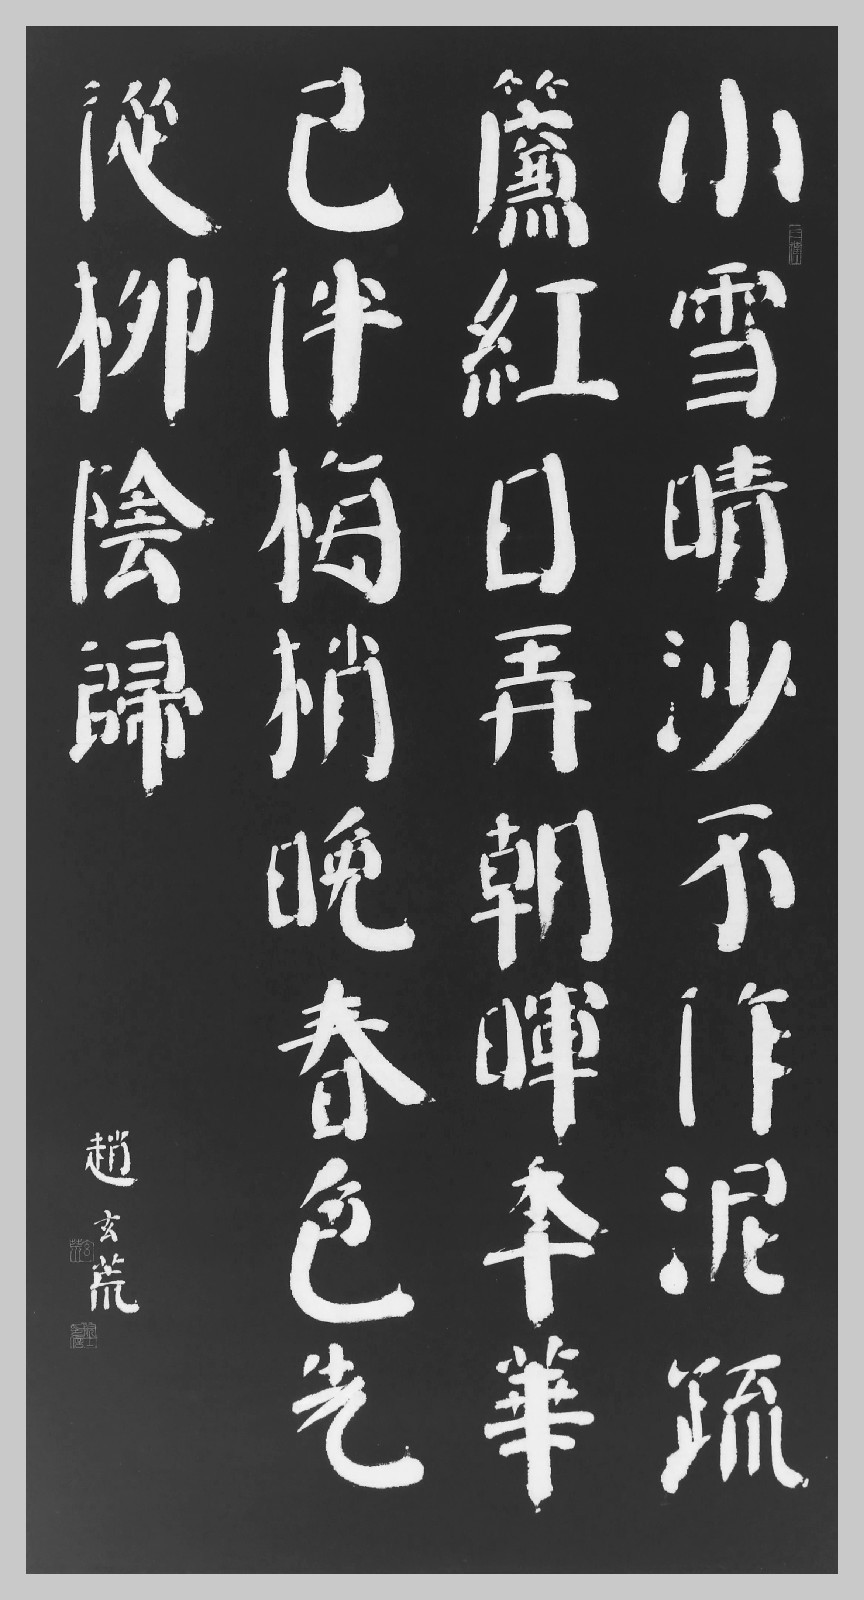 小雪晴沙不作泥疏
簾紅日弄朝暉秊華
已伴梅梢晚春色先
從柳陰歸
趙玄荒